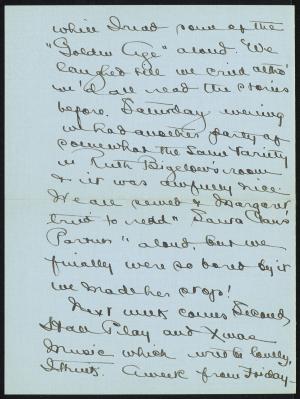 while I read some of the
"Golden Age" aloud. We
laughed till we cried altho'
we'd all read the stories
before. Saturday evening
we had another party of
somewhat the same variety
in Ruth Bigelow's room
& it was awfully nice.
We all sewed & Margaret
tried to read "Santa Claus'
Partner" aloud, but we
finally were so bored by it
we made her stop!
Next week comes Second,
Hall Play and Xmas
Music which will be lovely,
I think. A week from Friday